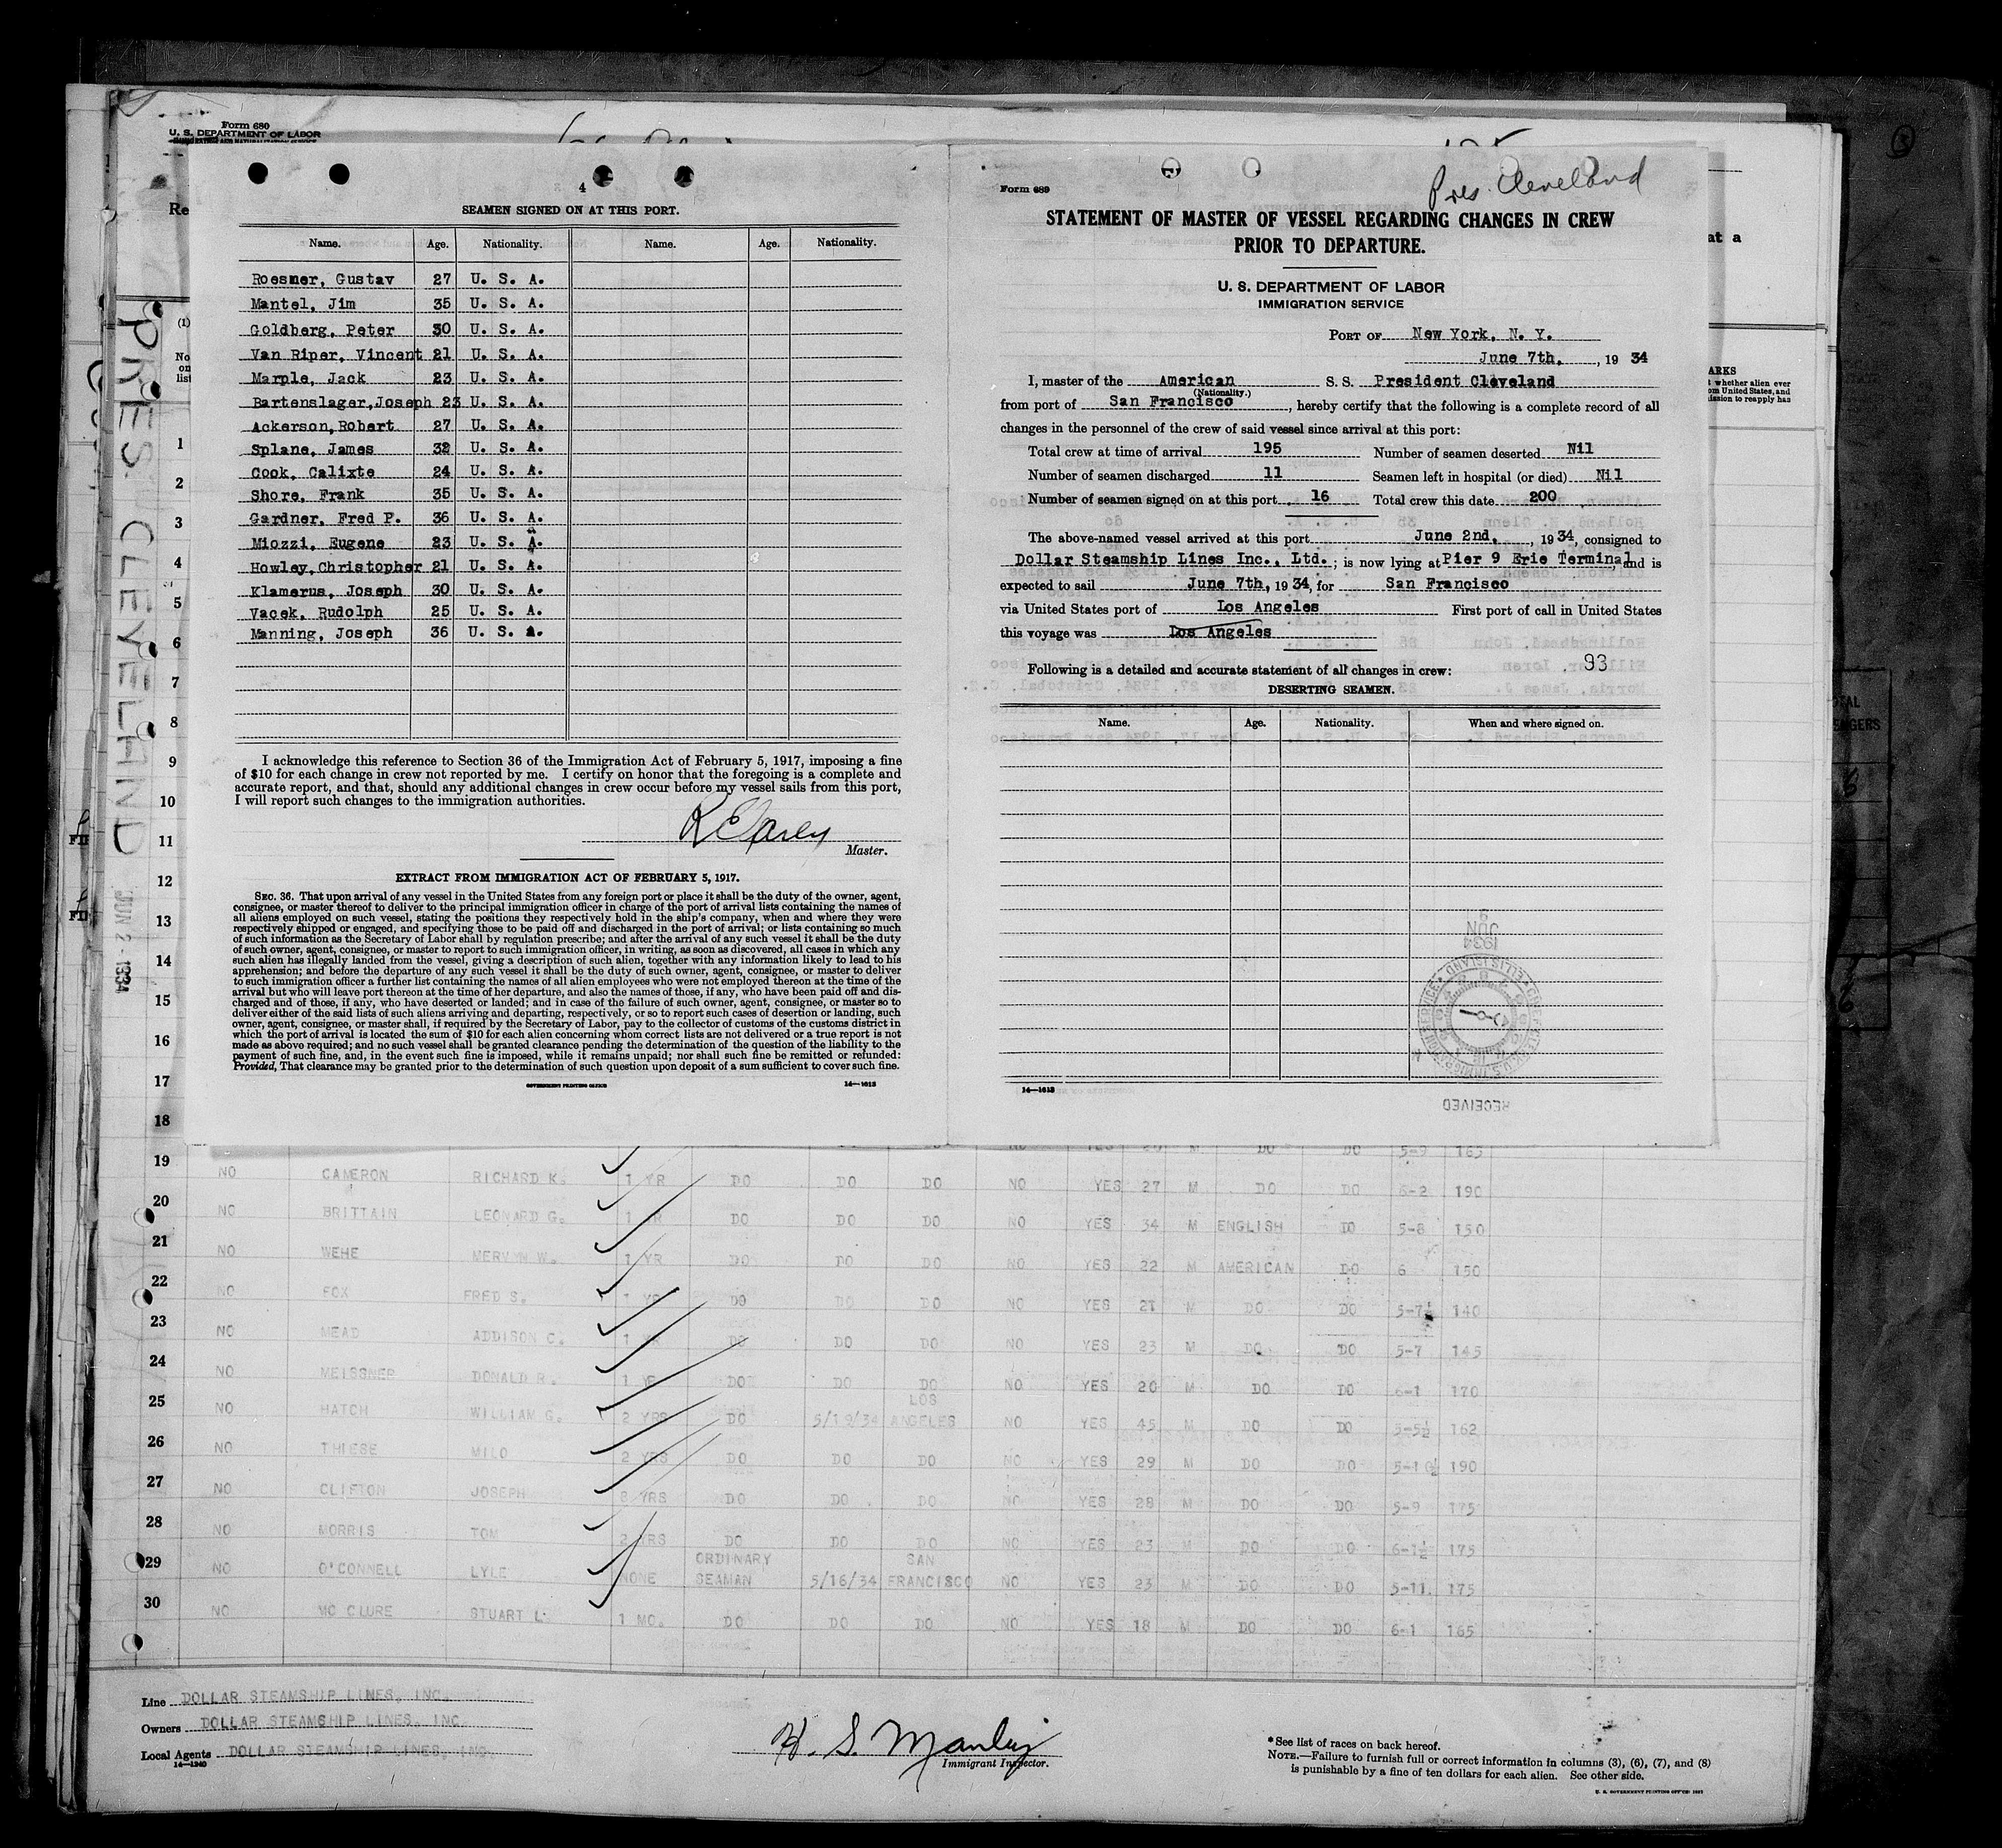 Form 680
U. S. DEPARTMENT OF LABOR
Re
4
SEAMEN SIGNED ON AT THIS PORT.
Name. Age. Nationality. Name. Age. Nationality.
Roesner, Gustav 27 U. S. A.
Mantel, Jim 35 U. S. A.
Goldberg, Peter 30 U. S. A.
Van Riper, Vincent 21 U. S. A.
Marple, Jack 23 U. S. A.
Bartenslager,Joseph 23 U. S. A.
Ackerson,Robert 27 U. S. A.
Splane, James 32 U. S. A.
Cook, Calixte 24 U. S. A.
Shore, Frank 35 U. S. A.
Gardner, Fred P. 36 U. S. A.
Miozzi, Eugene 23 U. S. A.
Howley,Christopher 21 U. S. A.
Klamerus, Joseph 30 U. S. A.
Vacek, Rudolph 25 U. S. A.
Manning, Joseph 36 U. S. A.
I acknowledge this reference to Section 36 of the Immigration Act of February 5, 1917, imposing a fine
of $10 for each change in crew not reported by me. I certify on honor that the foregoing is a complete and
accurate report, and that, should any additional changes in crew occur before my vessel sails from this port,
I will report such changes to the immigration authorities.
Master.
EXTRACT FROM IMMIGRATION ACT OF FEBRUARY 5, 1917.
SEC. 36. That upon arrival of any vessel in the United States from any foreign port or place it shall be the duty of the owner, agent,
consignee, or master thereof to deliver to the principal immigration officer in charge of the port of arrival lists containing the names of
all aliens employed on such vessel, stating the positions they respectively hold in the ship's company, when and where they were
respectively shipped or engaged, and specifying those to be paid off and discharged in the port of arrival; or lists containing so much
of such information as the Secretary of Labor shall by regulation prescribe; and after the arrival of any such vessel it shall be the duty
of such owner, agent, consignee, or master to report to such immigration officer, in writing, as soon as discovered, all cases in which any
such alien has illegally landed from the vessel, giving a description of such alien, together with any information likely to lead to his
apprehension; and before the departure of any such vessel it shall be the duty of such owner, agent, consignee, or master to deliver
to such immigration officer a further list containing the names of all alien employees who were not employed thereon at the time of the
arrival but who will leave port thereon at the time of her departure, and also the names of those, if any, who have been paid off and dis-
charged and of those, if any, who have deserted or landed; and in case of the failure of such owner, agent, consignee, or master so to
deliver either of the said lists of such aliens arriving and departing, respectively, or so to report such cases of desertion or landing, such
owner, agent, consignee, or master shall, if required by the Secretary of Labor, pay to the collector of customs of the customs district in
which the port of arrival is located the sum of $10 for each alien concerning whom correct lists are not delivered or a true report is not
made as above required; and no such vessel shall be granted clearance pending the determination of the question of the liability to the
payment of such fine, and, in the event such fine is imposed, while it remains unpaid; nor shall such fine be remitted or refunded:
Provided, That clearance may be granted prior to the determination of such question upon deposit of a sum sufficient to cover such fine.
GOVERNMENT PRINTING OFFICE 14—1613
Pres. Cleveland
Form 689
STATEMENT OF MASTER OF VESSEL REGARDING CHANGES IN CREW
PRIOR TO DEPARTURE.
U. S. DEPARTMENT OF LABOR
IMMIGRATION SERVICE
PORT OF New York, N. Y.
June 7th, , 19 34
I, master of the American S. S. President Cleveland
(Nationality.)
from port of San Francisco , hereby certify that the following is a complete record of all
changes in the personnel of the crew of said vessel since arrival at this port:
Total crew at time of arrival 195 Number of seamen deserted Nil
Number of seamen discharged 11 Seamen left in hospital (or died) Nil
Number of seamen signed on at this port 16 Total crew this date 200
The above-named vessel arrived at this port June 2nd, , 1934, consigned to
Dollar Steamship Lines Inc., Ltd. ; is now lying at Pier 9 Erie Terminal and is
expected to sail June 7th, 19 34, for San Francisco
via United States port of Los Angeles First port of call in United States
this voyage was Los Angeles
93
Following is a detailed and accurate statement of all changes in crew:
DESERTING SEAMEN.
Name. Age. Nationality. When and where signed on.
14—1613
JUN
1934
RECEIVED
at a
ARKS
PRES. CLEVELAND JUN 2 - 1934
(1)
No
on
list
1
2
3
4
5
6
7
8
9
10
11
12
13
14
15
16
17
18
19 NO CAMERON RICHARD K. 1 YR DO DO DO NO YES 27 M DO DO 6-2 190
20 NO BRITTAIN LEONARD G. 1 YR DO DO DO NO YES 34 M ENGLISH DO 5-8 150
21 NO WEHE MERVYN W. 1 YR DO DO DO NO YES 22 M AMERICAN DO 6 150
22 NO FOX FRED S. 1 YR DO DO DO NO YES 21 M DO DO 5-7½ 140
23 NO MEAD ADDISON C. 1 YR DO DO DO NO YES 23 M DO DO 5-7 145
24 NO MEISSNER DONALD R. 1 YR DO DO DO NO YES 20 M DO DO 6-1 170
25 NO HATCH WILLIAM G. 2 YRS DO 5/19/34 LOS ANGELES NO YES 45 M DO DO 5-5½ 162
26 NO THIESE MILO 2 YRS DO DO DO NO YES 29 M DO DO 5-10½ 190
27 NO CLIFTON JOSEPH 8 YRS DO DO DO NO YES 28 M DO DO 5-9 175
28 NO MORRIS TOM 2 YRS DO DO DO NO YES 23 M DO DO 6-1½ 175
29 NO O'CONNELL LYLE NONE ORDINARY SEAMAN 5/16/34 SAN FRANCISCO NO YES 23 M DO DO 5-11 175
30 NO MC CLURE STUART L. 1 MO. DO DO DO NO YES 18 M DO DO 6-1 165
Line DOLLAR STEAMSHIP LINES, INC.
Owners DOLLAR STEAMSHIP LINES, INC.
Local Agents DOLLAR STEAMSHIP LINES, INC.
14—1240
H. S. Manley
Immigrant Inspector.
*See list of races on back hereof.
NOTE.—Failure to furnish full or correct information in columns (3), (6), (7), and (8)
is punishable by a fine of ten dollars for each alien. See other side.